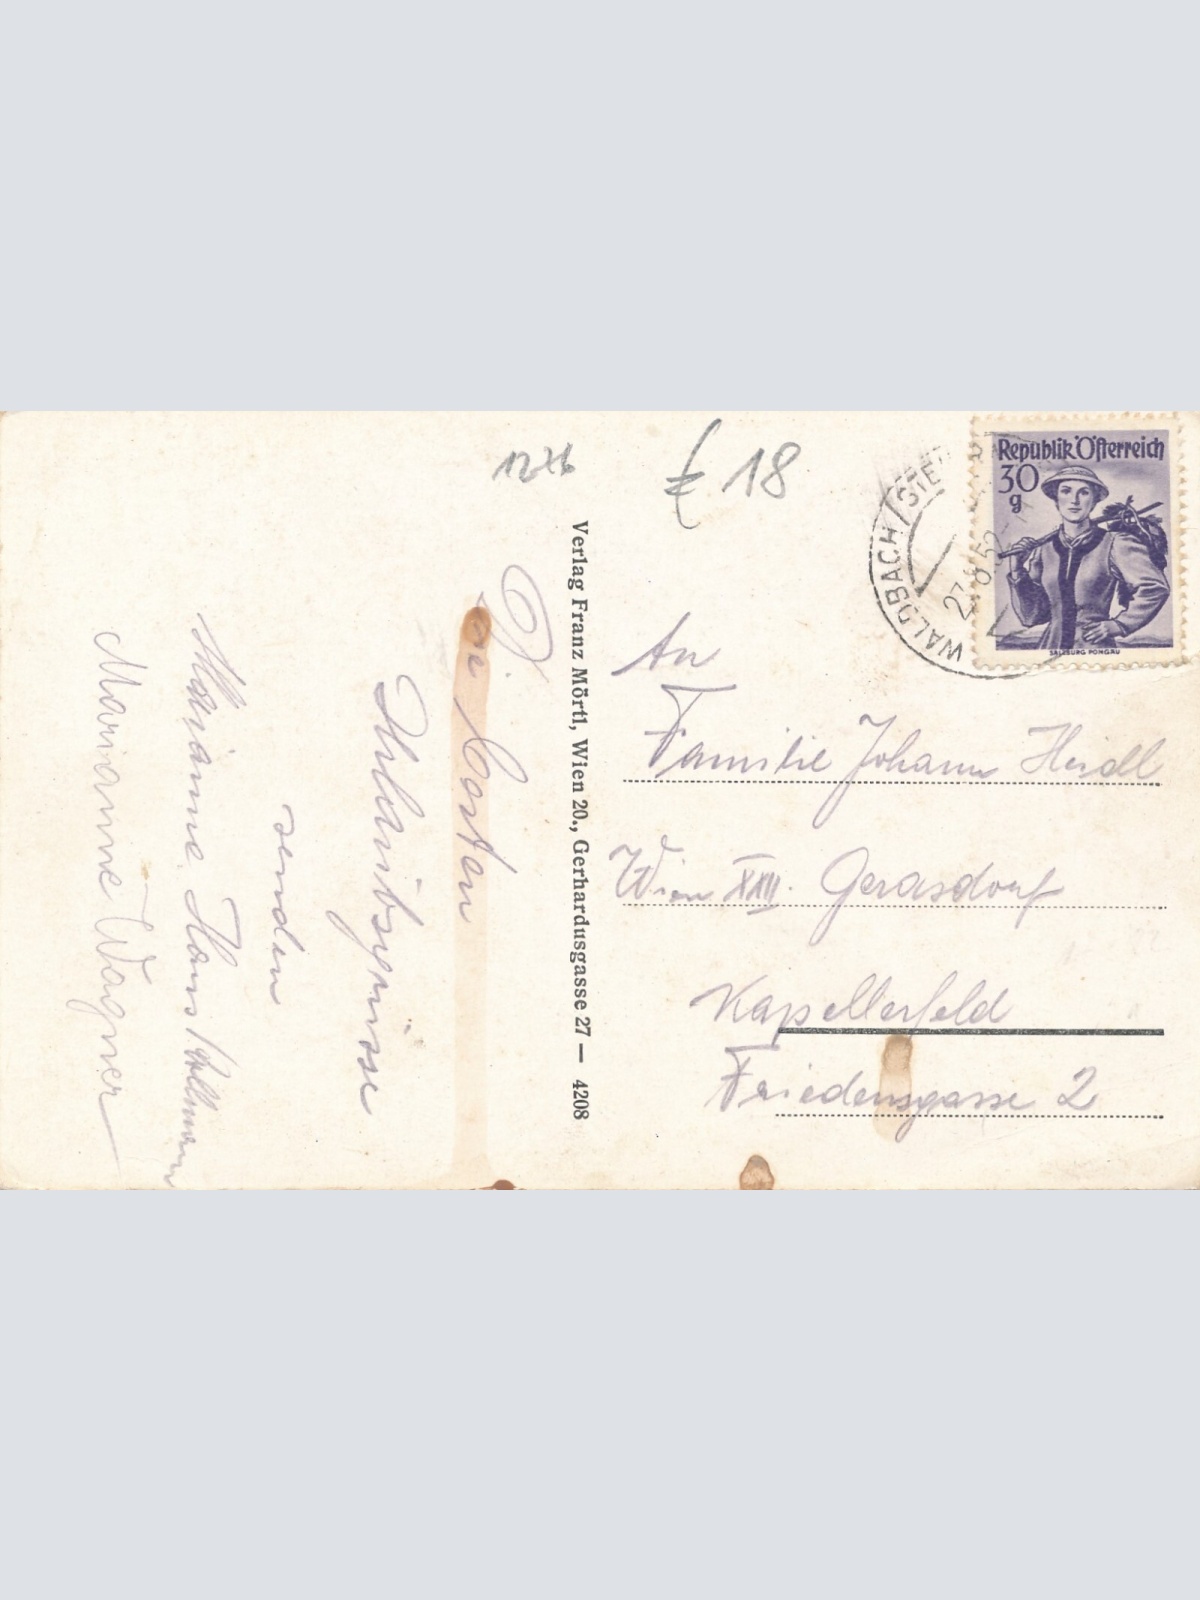 € 18
Republik Österreich
30
g
SALZBURG PONGAU
WALDBACH/STE
27.8.52
Verlag Franz Mörtl, Wien 20., Gerhardusgasse 27 — 4208
Die besten
Urlaubsgrüsse
senden
Marianne Hans
Marianne Wagner
An
Familie Johann Heidl
Wien XXII. Gerasdorf
Kapellerfeld
Friedensgasse 2